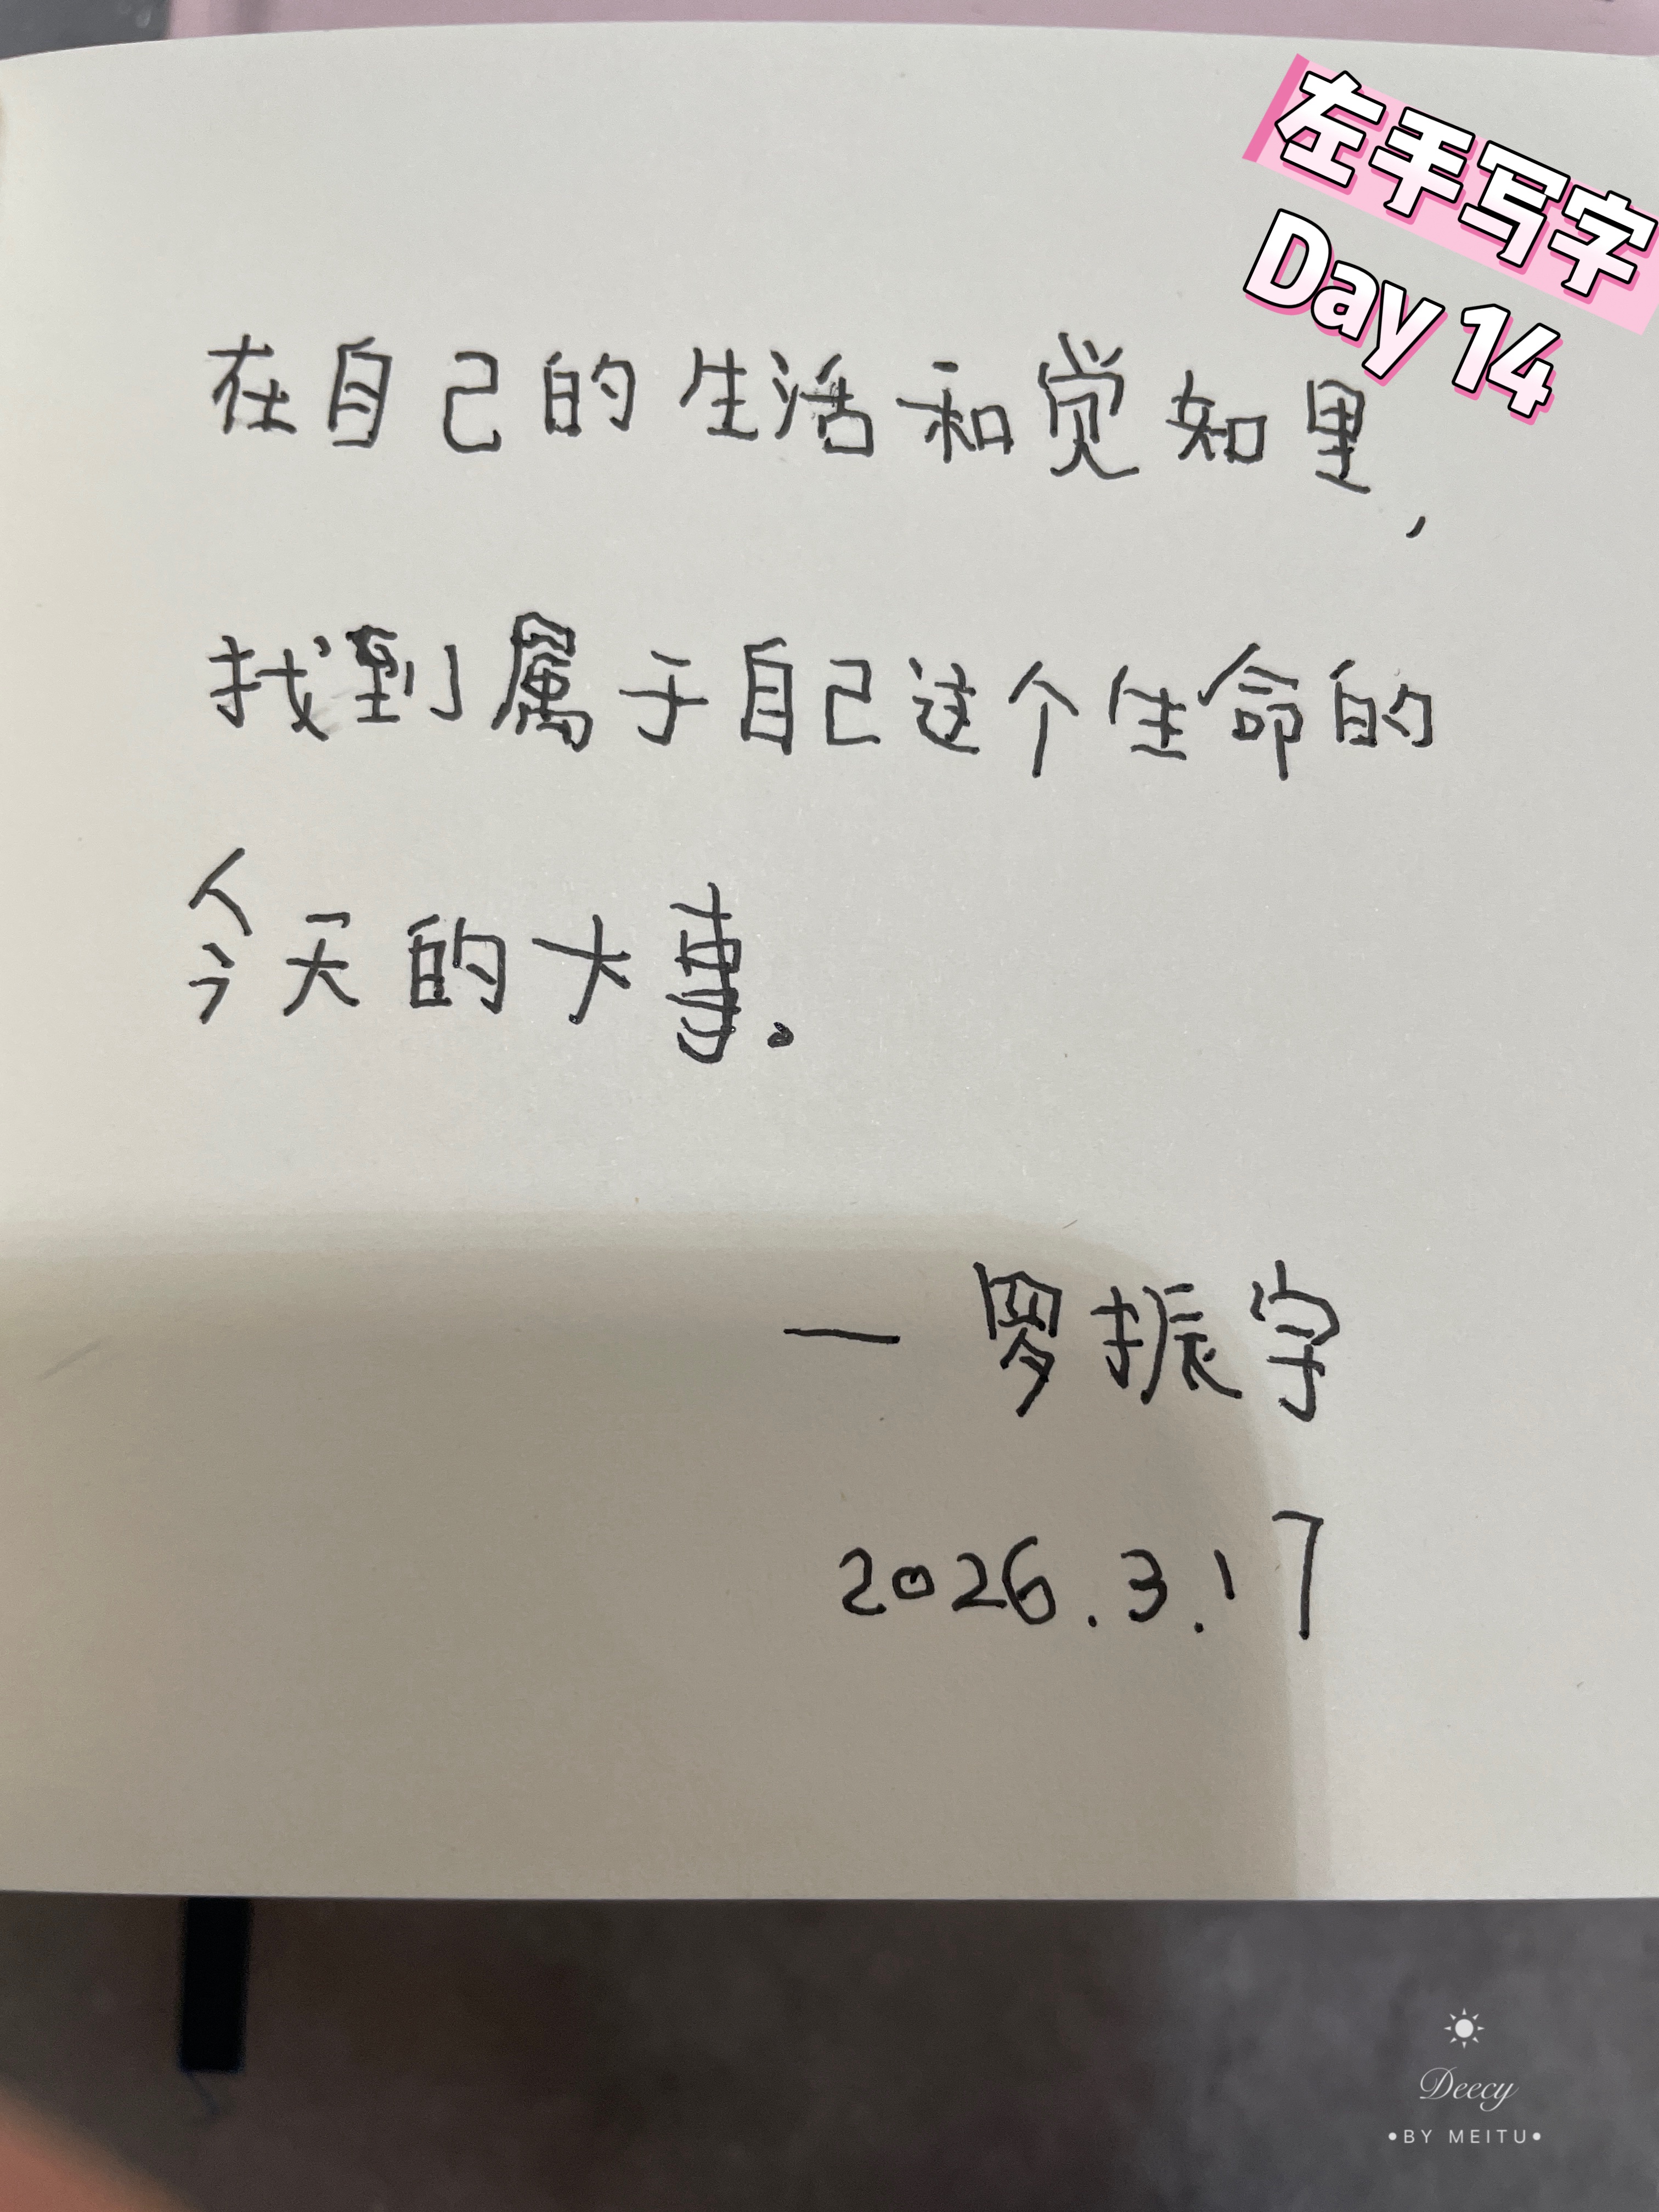 左手写字
Day 14
在自己的生活和觉知里，
找到属于自己这个生命的
今天的大事。
— 罗振宇
2026.3.17
Deecy
•BY MEITU•